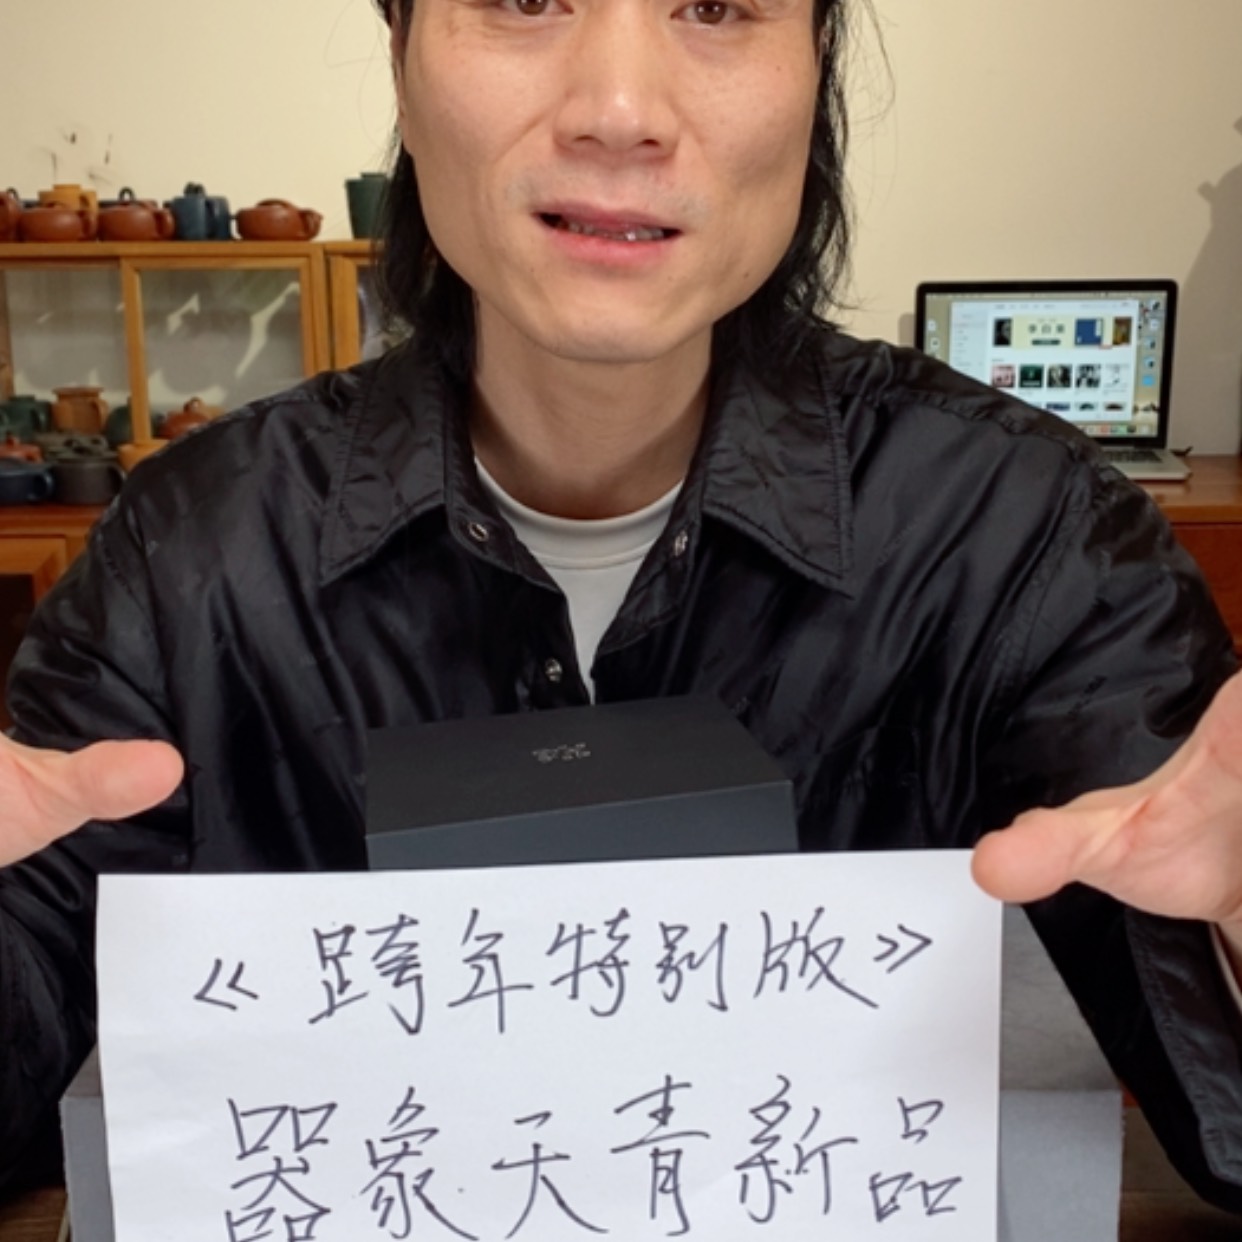 《跨年特别版》
器象天青新品